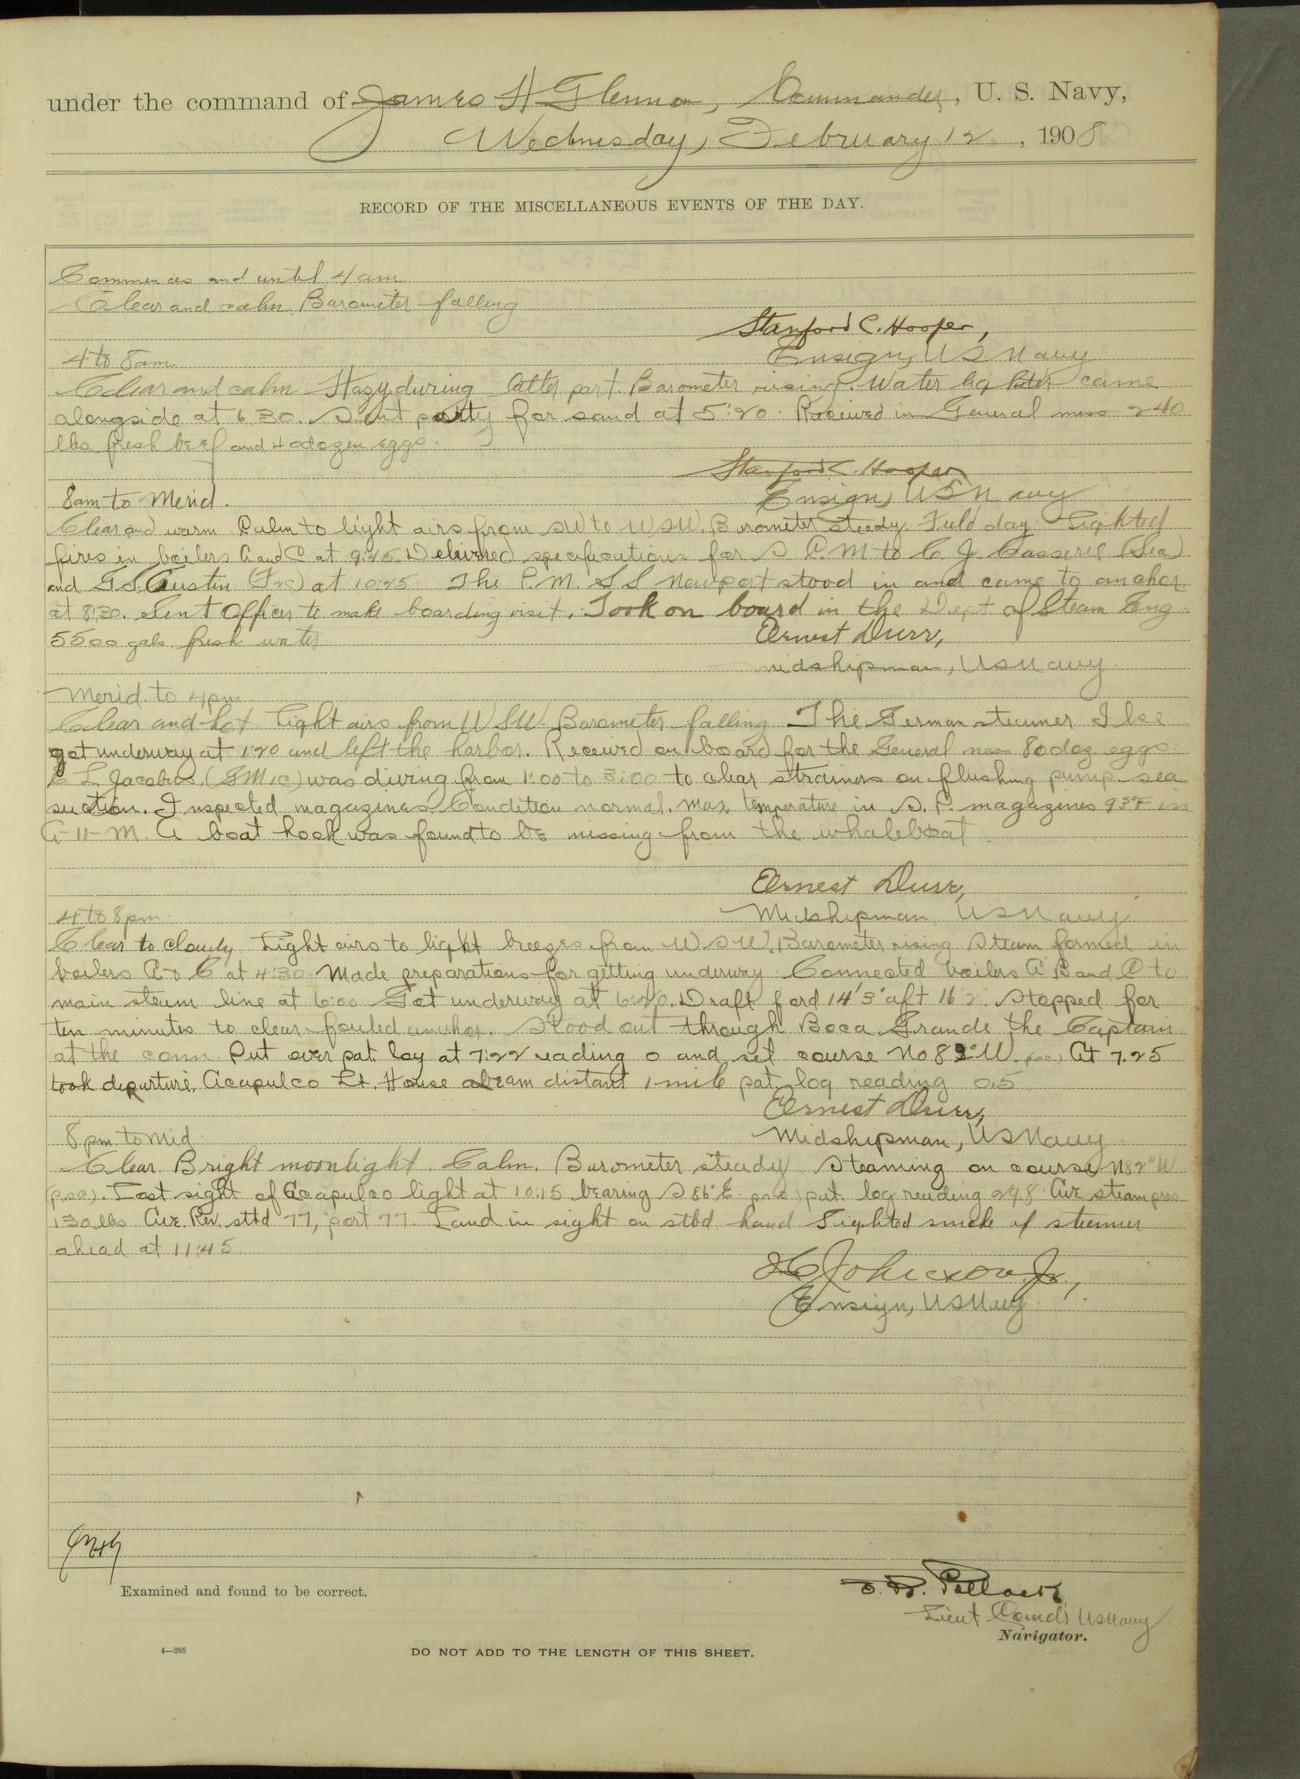 under the command of James H Glennon, Commander, U. S. Navy,
Wednesday, February 12, 1908
RECORD OF THE MISCELLANEOUS EVENTS OF THE DAY.
Commences and until 4 am
Clear and calm. Barometer falling
Stanford C. Hooper,
Ensign, US Navy
4 to 8 am
Clear and calm Hazy during latter part. Barometer rising. Water lighter came
alongside at 6:30. Sent party for sand at 5:20. Received in General mess 240
lbs. fresh beef and 40 dozen eggs.
Stanford C. Hooper
Ensign, US Navy
8 am to Merid.
Clear and warm Calm to light airs from SW to WSW. Barometer steady. Field day Lighted
fires in boilers A and C at 9:45. Delivered specifications for S C M to C J Casserie (Sea)
and G.S. Austin (F2c) at 10:25 The P.M. S.S. Newport stood in and came to anchor
at 8:30. Sent Officer to make boarding visit. Took on board in the Dept of Steam Eng
5500 gals fresh water
Ernest Durr,
Midshipman, US Navy
Merid. to 4 pm
Clear and hot Light airs from WSW. Barometer falling The German steamer
got underway at 1:20 and left the harbor. Received on board for the General mess 80 doz eggs.
C L Jacobus (GM1c) was diving from 1:00 to 3:00 to clear strainers on flushing pump sea
suction. Inspected magazines Condition normal. Max temperature in S. P. magazines 93°F in
A-11-M. A boat hook was found to be missing from the whaleboat
Ernest Durr,
Midshipman, US Navy
4 to 8 pm.
Clear to cloudy Light airs to light breezes from WSW. Barometer rising Steam formed in
boilers A & C at 4:30 Made preparations for getting underway. Connected boilers A B and C to
main steam line at 6:00 Got underway at 6:20. Draft ford 14'3" aft 16'2 Stopped for
ten minutes to clear fouled anchor. Stood out through Boca Grande the Captain
at the conn Put over pat. log at 7:22 reading 0 and set course No 82°W (psc) At 7.25
took departure. Acapulco Lt. House abeam distant 1 mile pat. log reading 0.5
Ernest Durr,
Midshipman, US Navy
8 pm. to Mid
Clear Bright moonlight. Calm. Barometer steady Steaming on course N82°W
(psc). Lost sight of Acapulco light at 10:15 bearing S 86°E psc) pat. log reading 24.8 Ave steam pres
130 lbs. Ave. Rev. stbd 77, port 77. Land in sight on stbd hand Sighted smoke of steamer
ahead at 11:45
Ensign, US Navy
Examined and found to be correct.
Pollock
Lieut Comdr US Navy
Navigator.
4—265
DO NOT ADD TO THE LENGTH OF THIS SHEET.